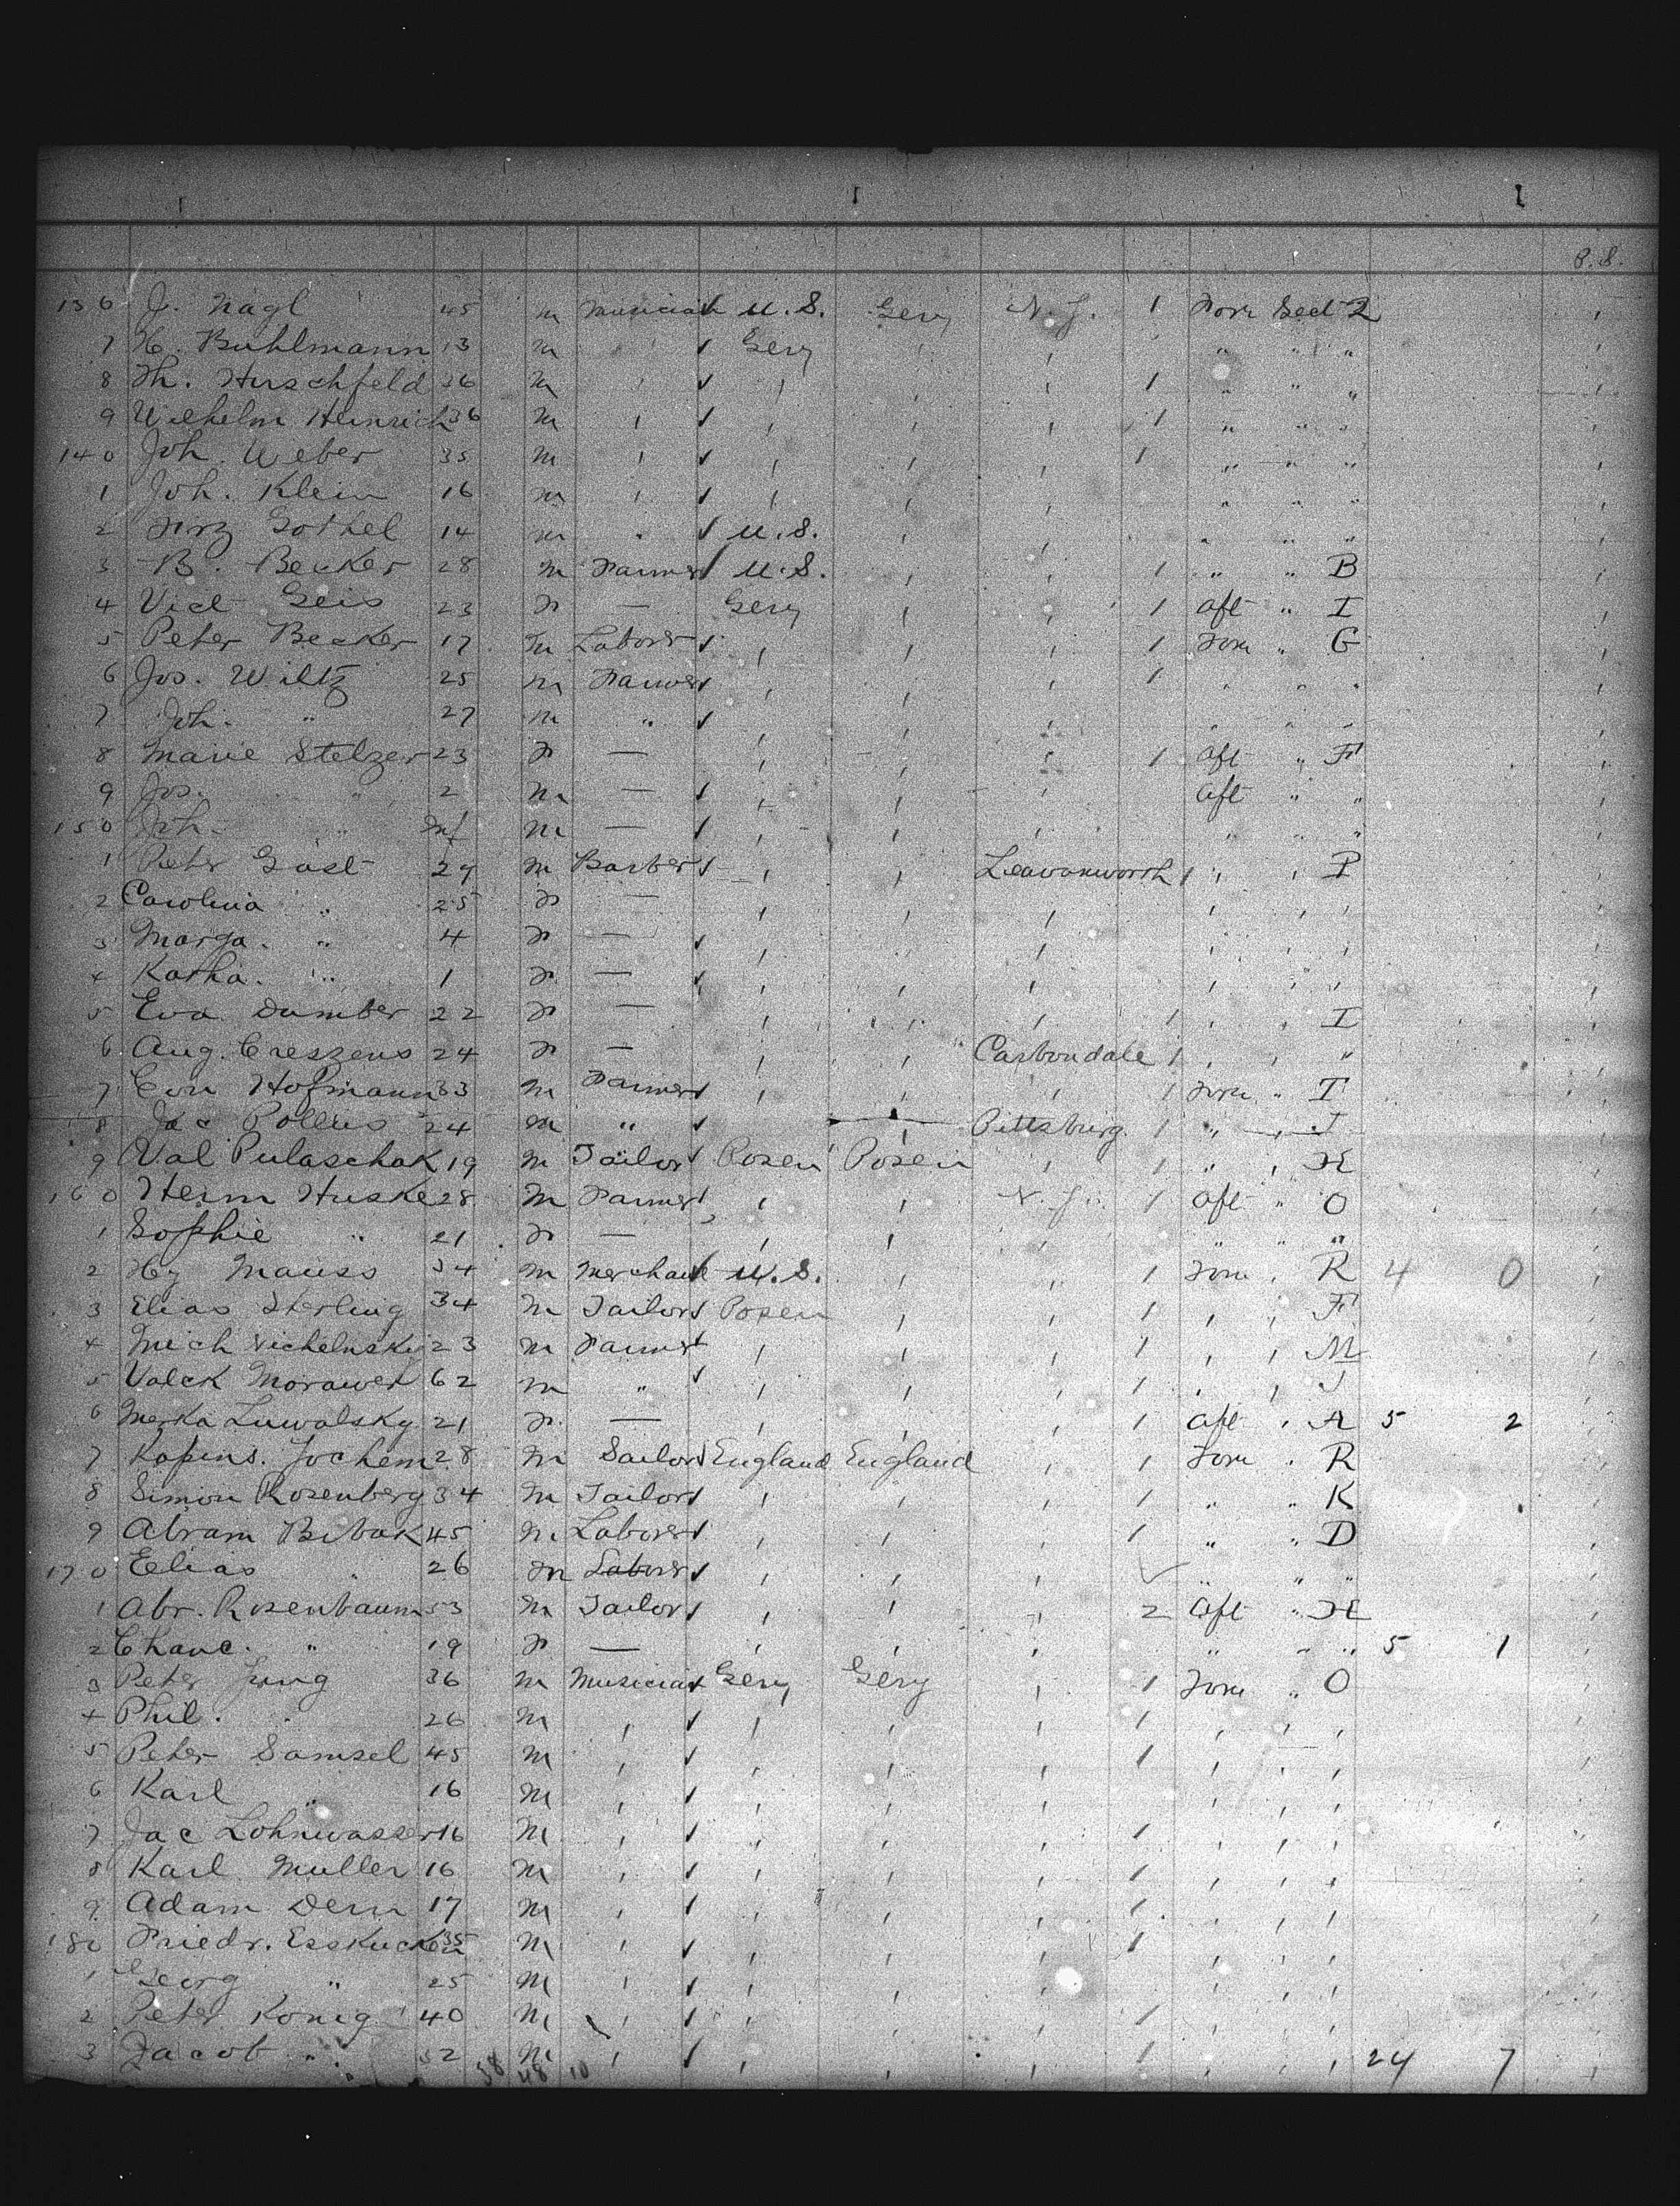 P.S.
136 J. Nagl 45 m Musician U.S. Gery N.Y. 1 Forw Sect 2
7 H. Buhlmann 13 m " Gery " " " " "
8 Th. Hirschfeld 36 m " " " " 1 " " "
9 Wilhelm Heinrich 36 m " " " " 1 " " "
140 Joh. Weber 35 m " " " " 1 " " "
1 Joh. Klein 16 m " " " " " " "
2 Frz Gothel 14 m " U.S. " " " " "
3 B. Becker 28 m Farmer U.S. " " 1 " " B
4 Vict Geis 23 F — Gery " " 1 Aft " I
5 Peter Becker 17 m Laborer " " " 1 Forw " G
6 Jos. Wiltz 25 m Farmer " " " 1 " " "
7 Joh. " 27 m " " " " " " "
8 Marie Stelzer 23 F — " " " 1 Aft " F
9 Jos. " 2 m — " " " Aft " "
150 Joh. " Inf m — " " " " " "
1 Peter Gast 29 m Barber " " Leavenworth 1 " " P
2 Carolina " 25 F — " " " " " "
3 Marga. " 4 F — " " " " " "
4 Katha. " 1 F — " " " " " "
5 Eva Dumber 22 F — " " " 1 " " I
6 Aug. Creszens 24 F — " " Carbondale 1 " " "
7 Con Hofmann 33 m Farmer " " " 1 Forw " I
8 Jac Pollus 24 m " " " Pittsburg 1 " " J
9 Val Pulaschak 19 m Tailor Posen Posen " 1 " " H
160 Herm Huske 28 m Farmer " " N.Y. 1 Aft " O
1 Sophie " 21 F — " " " " " "
2 Hy Mauss 34 m Merchant U.S. " " 1 Forw " R 4 0
3 Elias Sterling 34 m Tailor Posen " " 1 " " F
4 Mich 23 m Farmer " " " 1 " " M
5 Valek Morawer 62 m " " " " 1 " " J
6 Merka Luwalsky 21 F — " " " 1 Aft " A 5 2
7 Kopins. Jochem 28 m Sailor England England " 1 Forw " R
8 Simon Rosenberg 34 m Tailor " " " 1 " " K
9 Abram Bibak 45 m Laborer " " " 1 " " D
170 Elias " 26 m Laborer " " " " " "
1 Abr. Rosenbaum 53 m Tailor " " " 2 Aft " H
2 Chane. " 19 F — " " " " " " 5 1
3 Peter Jung 36 m Musician Gery Gery " 1 Forw " O
4 Phil. " 26 m " " " " 1 " " "
5 Peter Samsel 45 m " " " " 1 " " "
6 Karl " 16 m " " " " " " "
7 Jac Lohnwasser 16 m " " " " 1 " " "
8 Karl Muller 16 m " " " " 1 " " "
9 Adam Dern 17 m " " " " 1 " " "
180 Friedr. Esskuchen 35 m " " " " 1 " " "
1 Georg " 25 m " " " " " " "
2 Peter Konig 40 m " " " " 1 " " "
3 Jacob " 32 m " " " " 1 " " " 24 7
58 48 10